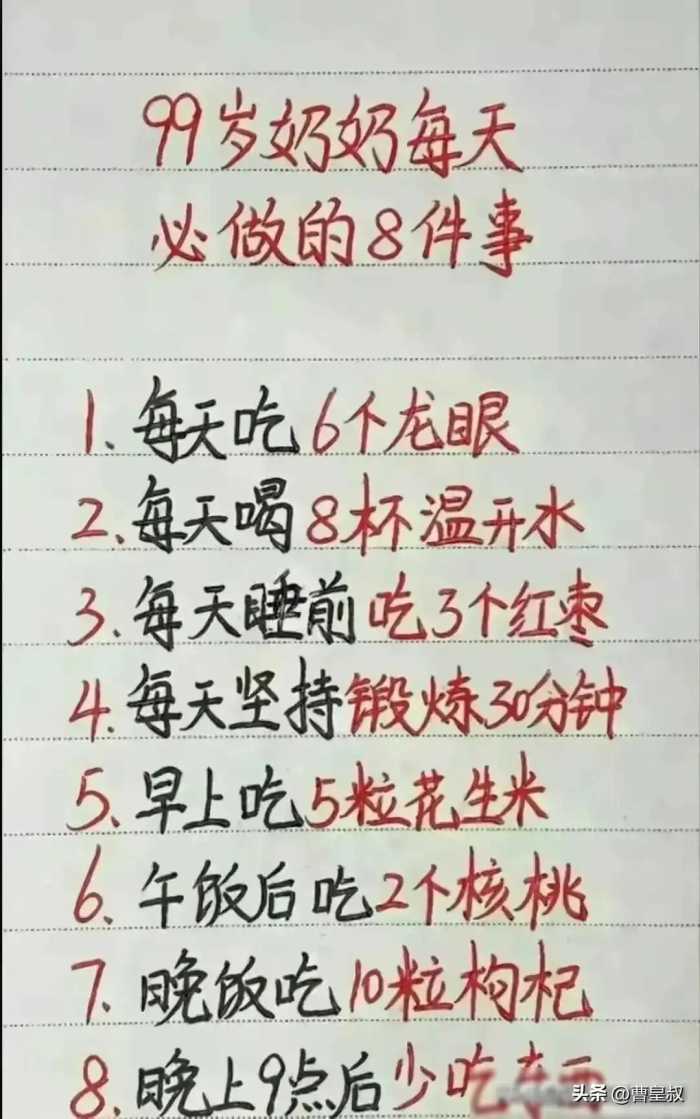 99岁奶奶每天
必做的8件事
1.每天吃6个龙眼
2.每天喝8杯温开水
3.每天睡前吃3个红枣
4.每天坚持锻炼30分钟
5.早上吃5粒花生米
6.午饭后吃2个核桃
7.晚饭吃10粒枸杞
8.晚上9点后少吃东西
头条@曹皇叔